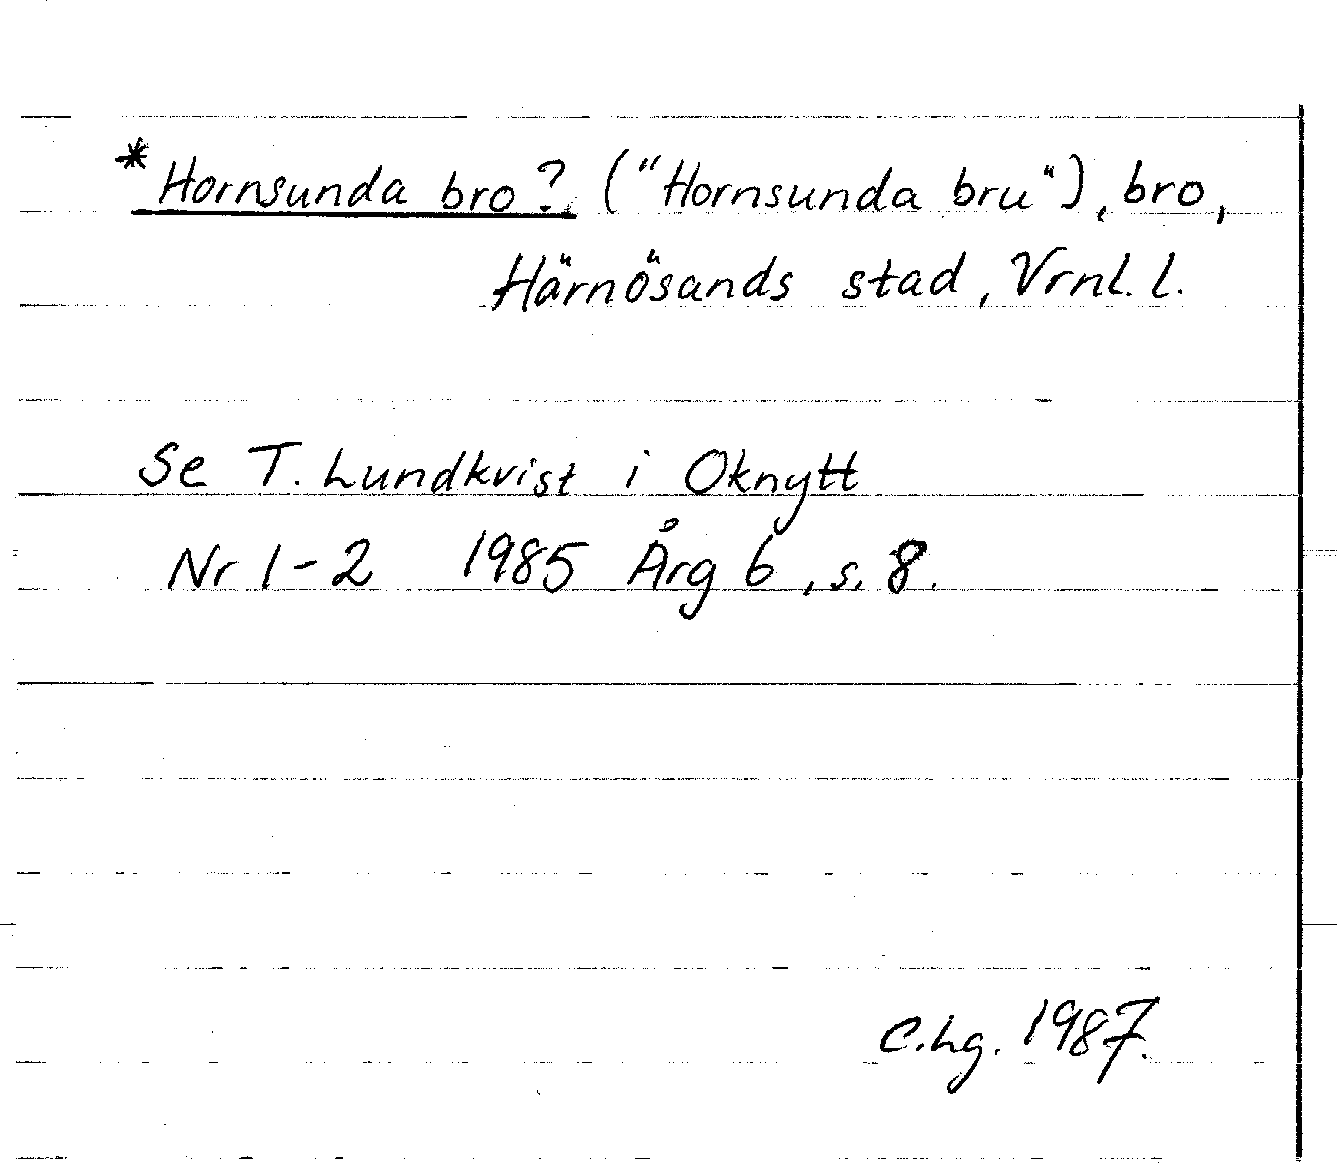 *Hornsunda bro? ("Hornsunda bru"), bro,
Härnösands stad, Vrnl. l.
Se T. Lundkvist i Oknytt
Nr 1-2 1985 Årg 6, s. 8.
C.Lg. 1987.